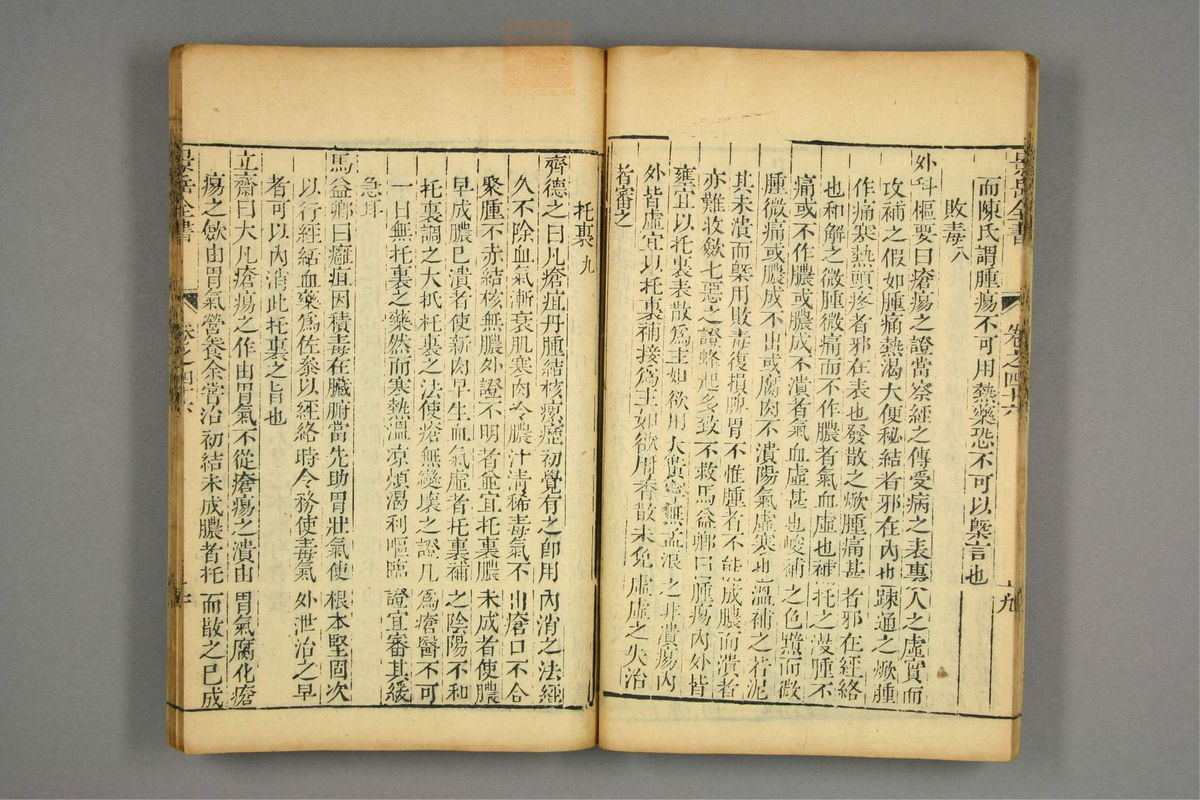 景岳全書　卷之四十六　十九
而陳氏謂腫瘍不可用熱藥恐不可以槩言也
敗毒八
外科樞要曰瘡瘍之證當察經之傳受病之表裏人之虛實而
攻補之假如腫痛熱渴大便秘結者邪在內也疎通之焮腫
作痛寒熱頭疼者邪在表也發散之焮腫痛甚者邪在經絡
也和解之微腫微痛而不作膿者氣血虛也補托之漫腫不
痛或不作膿或膿成不潰者氣血虛甚也峻補之色黯而微
腫微痛或膿成不出或腐肉不潰陽氣虛寒也溫補之若泥
其未潰而槩用敗毒復損脾胃不惟腫者不能成膿而潰者
亦難收斂七惡之證蜂起多致不救馬益卿曰腫瘍內外皆
壅宜以托裏表散爲主如欲用大黃寧無孟浪之非潰瘍內
外皆虛宜以托裏補接爲主如欲用香散未免虛虛之失治
者審之
托裏九
齊德之曰凡瘡疽丹腫結核瘰癧初覺有之卽用內消之法經
久不除血氣漸衰肌寒肉冷膿汁清稀毒氣不出瘡口不合
聚腫不赤結核無膿外證不明者並宜托裏膿未成者使膿
早成膿已潰者使新肉早生血氣虛者托裏補之陰陽不和
托裏調之大抵托裏之法使瘡無變壞之證凡爲瘡醫不可
一日無托裏之藥然而寒熱溫涼煩渴利嘔臨證宜審其緩
急耳
馬益卿曰癰疽因積毒在臟腑當先助胃壯氣使根本堅固次
以行經活血藥爲佐參以經絡時令務使毒氣外泄治之早
者可以內消此托裏之旨也
立齋曰大凡瘡瘍之作由胃氣不從瘡瘍之潰由胃氣腐化瘡
瘍之斂由胃氣營養余嘗治初結未成膿者托而散之已成
景岳全書　卷之四十六